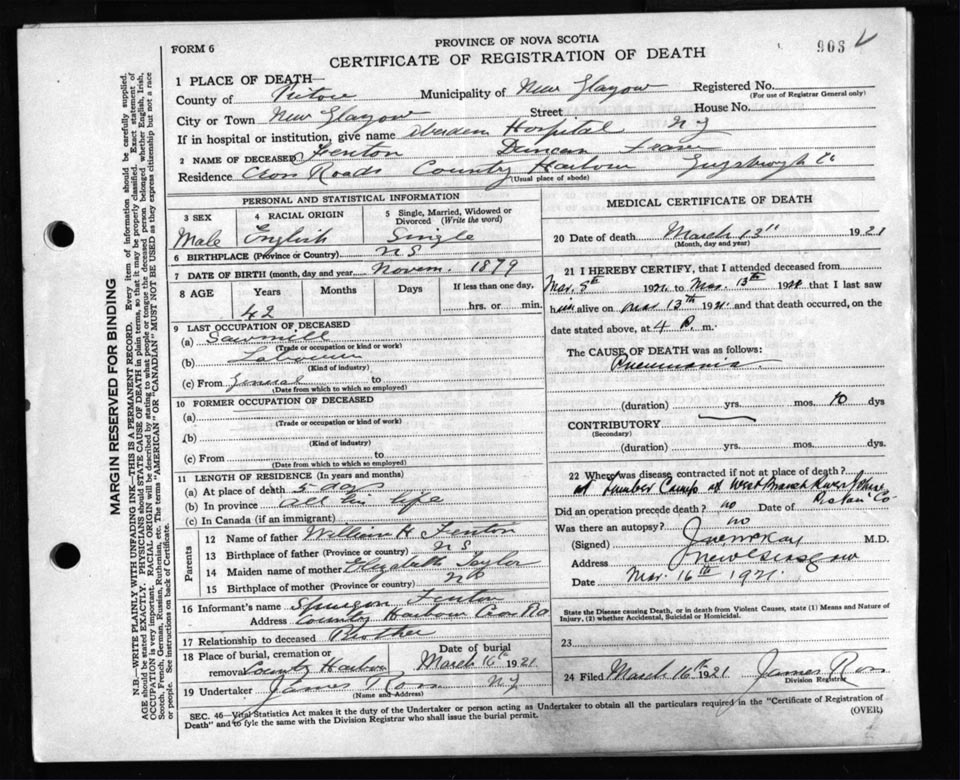 FORM 6
PROVINCE OF NOVA SCOTIA
903
CERTIFICATE OF REGISTRATION OF DEATH
1 PLACE OF DEATH—
County of Pictou Municipality of New Glasgow Registered No.
(For use of Registrar General only)
City or Town New Glasgow Street House No.
If in hospital or institution, give name Aberdeen Hospital N G
2 NAME OF DECEASED Fenton Duncan
Residence Cross Roads Country Harbour Guysborough Co
(Usual place of abode)
PERSONAL AND STATISTICAL INFORMATION
3 SEX 4 RACIAL ORIGIN 5 Single, Married, Widowed or Divorced (Write the word)
Male English Single
6 BIRTHPLACE (Province or Country) N S
7 DATE OF BIRTH (month, day and year) Novem. 1879
8 AGE Years Months Days If less than one day,
42 hrs. or min.
9 LAST OCCUPATION OF DECEASED
(a) Sawmill
(Trade or occupation or kind or work)
(b) Labourer
(Kind of industry)
(c) From General to
(Date from which to which so employed)
10 FORMER OCCUPATION OF DECEASED
(a)
(Trade or occupation or kind of work)
(b)
(Kind of industry)
(c) From to
(Date from which to which so employed)
11 LENGTH OF RESIDENCE (In years and months)
(a) At place of death 5 days
(b) In province all his life
(c) In Canada (if an immigrant)
Parents
12 Name of father William H Fenton
13 Birthplace of father (Province or country) N S
14 Maiden name of mother Elizabeth Taylor
15 Birthplace of mother (Province or country) N S
16 Informant's name Spurgeon Fenton
Address Country Harbour Cross Rd
17 Relationship to deceased Brother
18 Place of burial, cremation or removal Country Harbour
Date of burial March 16th 1921
19 Undertaker James Ross N G
(Name and Address)
MEDICAL CERTIFICATE OF DEATH
20 Date of death March 13th 1921
(Month, day and year)
21 I HEREBY CERTIFY, that I attended deceased from
Mar. 9th 1921. to Mar. 13th 1921 that I last saw
him alive on Mar 13th 1921. and that death occurred, on the
date stated above, at 4 P. m.
The CAUSE OF DEATH was as follows:
Pneumonia
(duration) yrs. mos. 10 dys
CONTRIBUTORY
(Secondary)
(duration) yrs. mos. dys.
22 Where was disease contracted if not at place of death?
at Lumber Camp at West Branch River John Pictou Co
Did an operation precede death? no Date of
Was there an autopsy? no
(Signed) M.D.
Address New Glasgow
Date Mar. 16th 1921.
State the Disease causing Death, or in death from Violent Causes, state (1) Means and Nature of
Injury, (2) whether Accidental, Suicidal or Homicidal.
23
24 Filed March 16th 1921 James Ross
Division Registrar
SEC. 46—Vital Statistics Act makes it the duty of the Undertaker or person acting as Undertaker to obtain all the particulars required in the "Certificate of Registration of
Death" and to fyle the same with the Division Registrar who shall issue the burial permit.
(OVER)
MARGIN RESERVED FOR BINDING
N.B.—WRITE PLAINLY WITH UNFADING INK—THIS IS A PERMANENT RECORD. Every item of information should be carefully supplied.
AGE should be stated EXACTLY. PHYSICIANS should STATE CAUSE OF DEATH in plain terms, so that it may be properly classified. Exact statement of
OCCUPATION is very important. RACIAL ORIGIN will be described by stating to what people or tongue the deceased person belonged whether English, Irish,
Scotch, French, German, Russian, Ruthenian, etc. The terms "AMERICAN" OR "CANADIAN" MUST NOT BE USED as they express citizenship but not a race
or people. See instructions on back of Certificate.